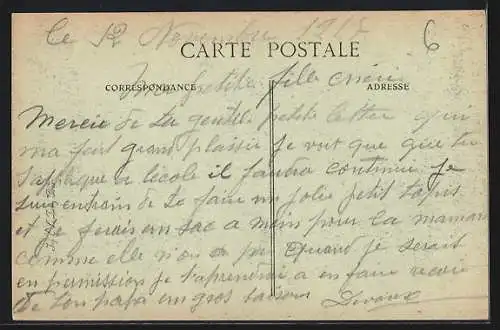 Le 12 Novembre 191
6
CARTE POSTALE
CORRESPONDANCE
ADRESSE
Ma petite fille chérie
Mercie de ta gentille petite letter qui
ma fait grand plaisir je voit que tu
t'applique a lécole il faudra continuer je
suis entrain de te faire un jolie petit tapis
et je ferais un sac a main pour ta maman
comme elle n'on a pas Quand je serait
en permission je t'apprendrai a en faire recoie
de ton papa un gros baisers